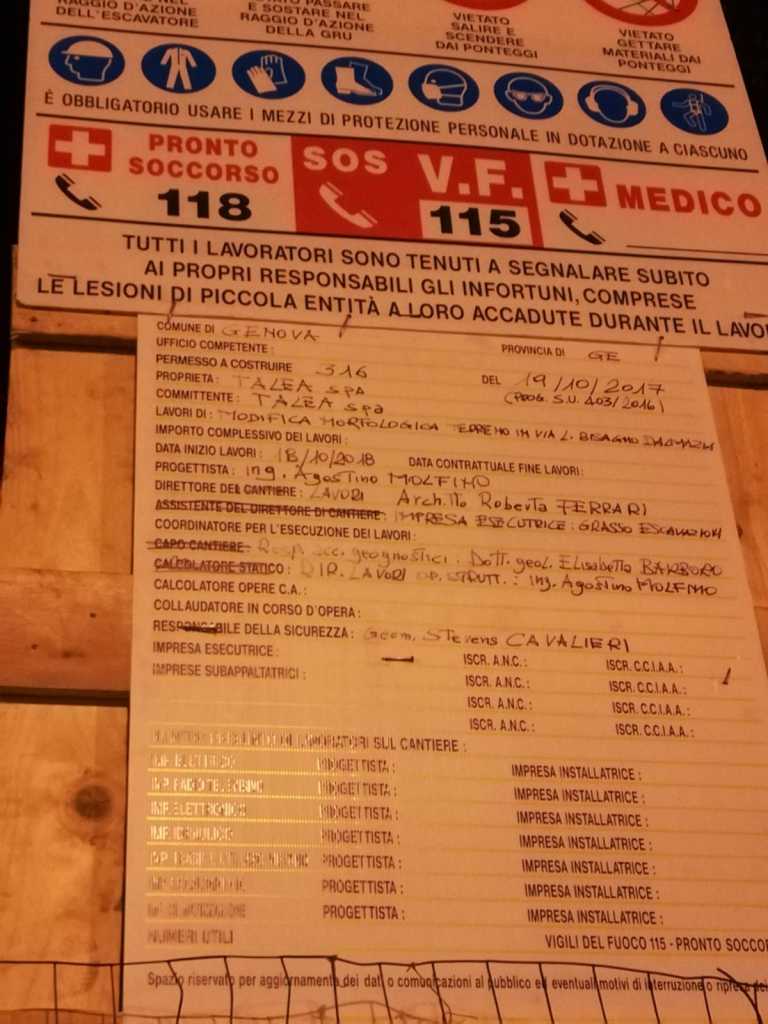 RAGGIO D'AZIONE
DELL'ESCAVATORE
PASSARE
E SOSTARE NEL
RAGGIO D'AZIONE
DELLA GRU
VIETATO
SALIRE E
SCENDERE
DAI PONTEGGI
VIETATO
GETTARE
MATERIALI DAI
PONTEGGI
È OBBLIGATORIO USARE I MEZZI DI PROTEZIONE PERSONALE IN DOTAZIONE A CIASCUNO
PRONTO
SOCCORSO
118
SOS
V.F.
115
MEDICO
TUTTI I LAVORATORI SONO TENUTI A SEGNALARE SUBITO
AI PROPRI RESPONSABILI GLI INFORTUNI, COMPRESE
LE LESIONI DI PICCOLA ENTITÀ A LORO ACCADUTE DURANTE IL LAVO
COMUNE DI GENOVA PROVINCIA DI GE
UFFICIO COMPETENTE :
PERMESSO A COSTRUIRE 316 DEL 19/10/2017
PROPRIETA : TALEA SPA (PROG. S.U. 403/2016)
COMMITTENTE : TALEA SPA
LAVORI DI : MODIFICA MORFOLOGICA TERRENO IN VIA L. BISAGNO DALMAZIA
IMPORTO COMPLESSIVO DEI LAVORI :
DATA INIZIO LAVORI : 18/10/2018 DATA CONTRATTUALE FINE LAVORI :
PROGETTISTA : ing. Agostino MOLFINO
DIRETTORE DEL CANTIERE : LAVORI Arch.tto Roberta FERRARI
ASSISTENTE DEL DIRETTORE DI CANTIERE : IMPRESA ESECUTRICE : GRASSO ESCAVAZIONI
COORDINATORE PER L'ESECUZIONE DEI LAVORI :
CAPO CANTIERE : geognostici : Dott. geol. Elisabetta BARBORO
CALCOLATORE STATICO : DIR. LAVORI OP. STRUTT. : ing. Agostino MOLFINO
CALCOLATORE OPERE C.A. :
COLLAUDATORE IN CORSO D'OPERA :
RESPONSABILE DELLA SICUREZZA : Geom. Stevens CAVALIERI
IMPRESA ESECUTRICE : ISCR. A.N.C. : ISCR. C.C.I.A.A. :
IMPRESE SUBAPPALTATRICI : ISCR. A.N.C. : ISCR. C.C.I.A.A. :
ISCR. A.N.C. : ISCR. C.C.I.A.A. :
ISCR. A.N.C. : ISCR. C.C.I.A.A. :
LAVORATORI SUL CANTIERE :
PROGETTISTA : IMPRESA INSTALLATRICE :
PROGETTISTA : IMPRESA INSTALLATRICE :
IMP. ELETTRONICO PROGETTISTA : IMPRESA INSTALLATRICE :
IMP. IDRAULICO PROGETTISTA : IMPRESA INSTALLATRICE :
PROGETTISTA : IMPRESA INSTALLATRICE :
PROGETTISTA : IMPRESA INSTALLATRICE :
PROGETTISTA : IMPRESA INSTALLATRICE :
NUMERI UTILI VIGILI DEL FUOCO 115 - PRONTO SOCCOR
Spazio riservato per aggiornamento dei dati o comunicazioni al pubblico ed eventuali motivi di interruzione o ripresa dei